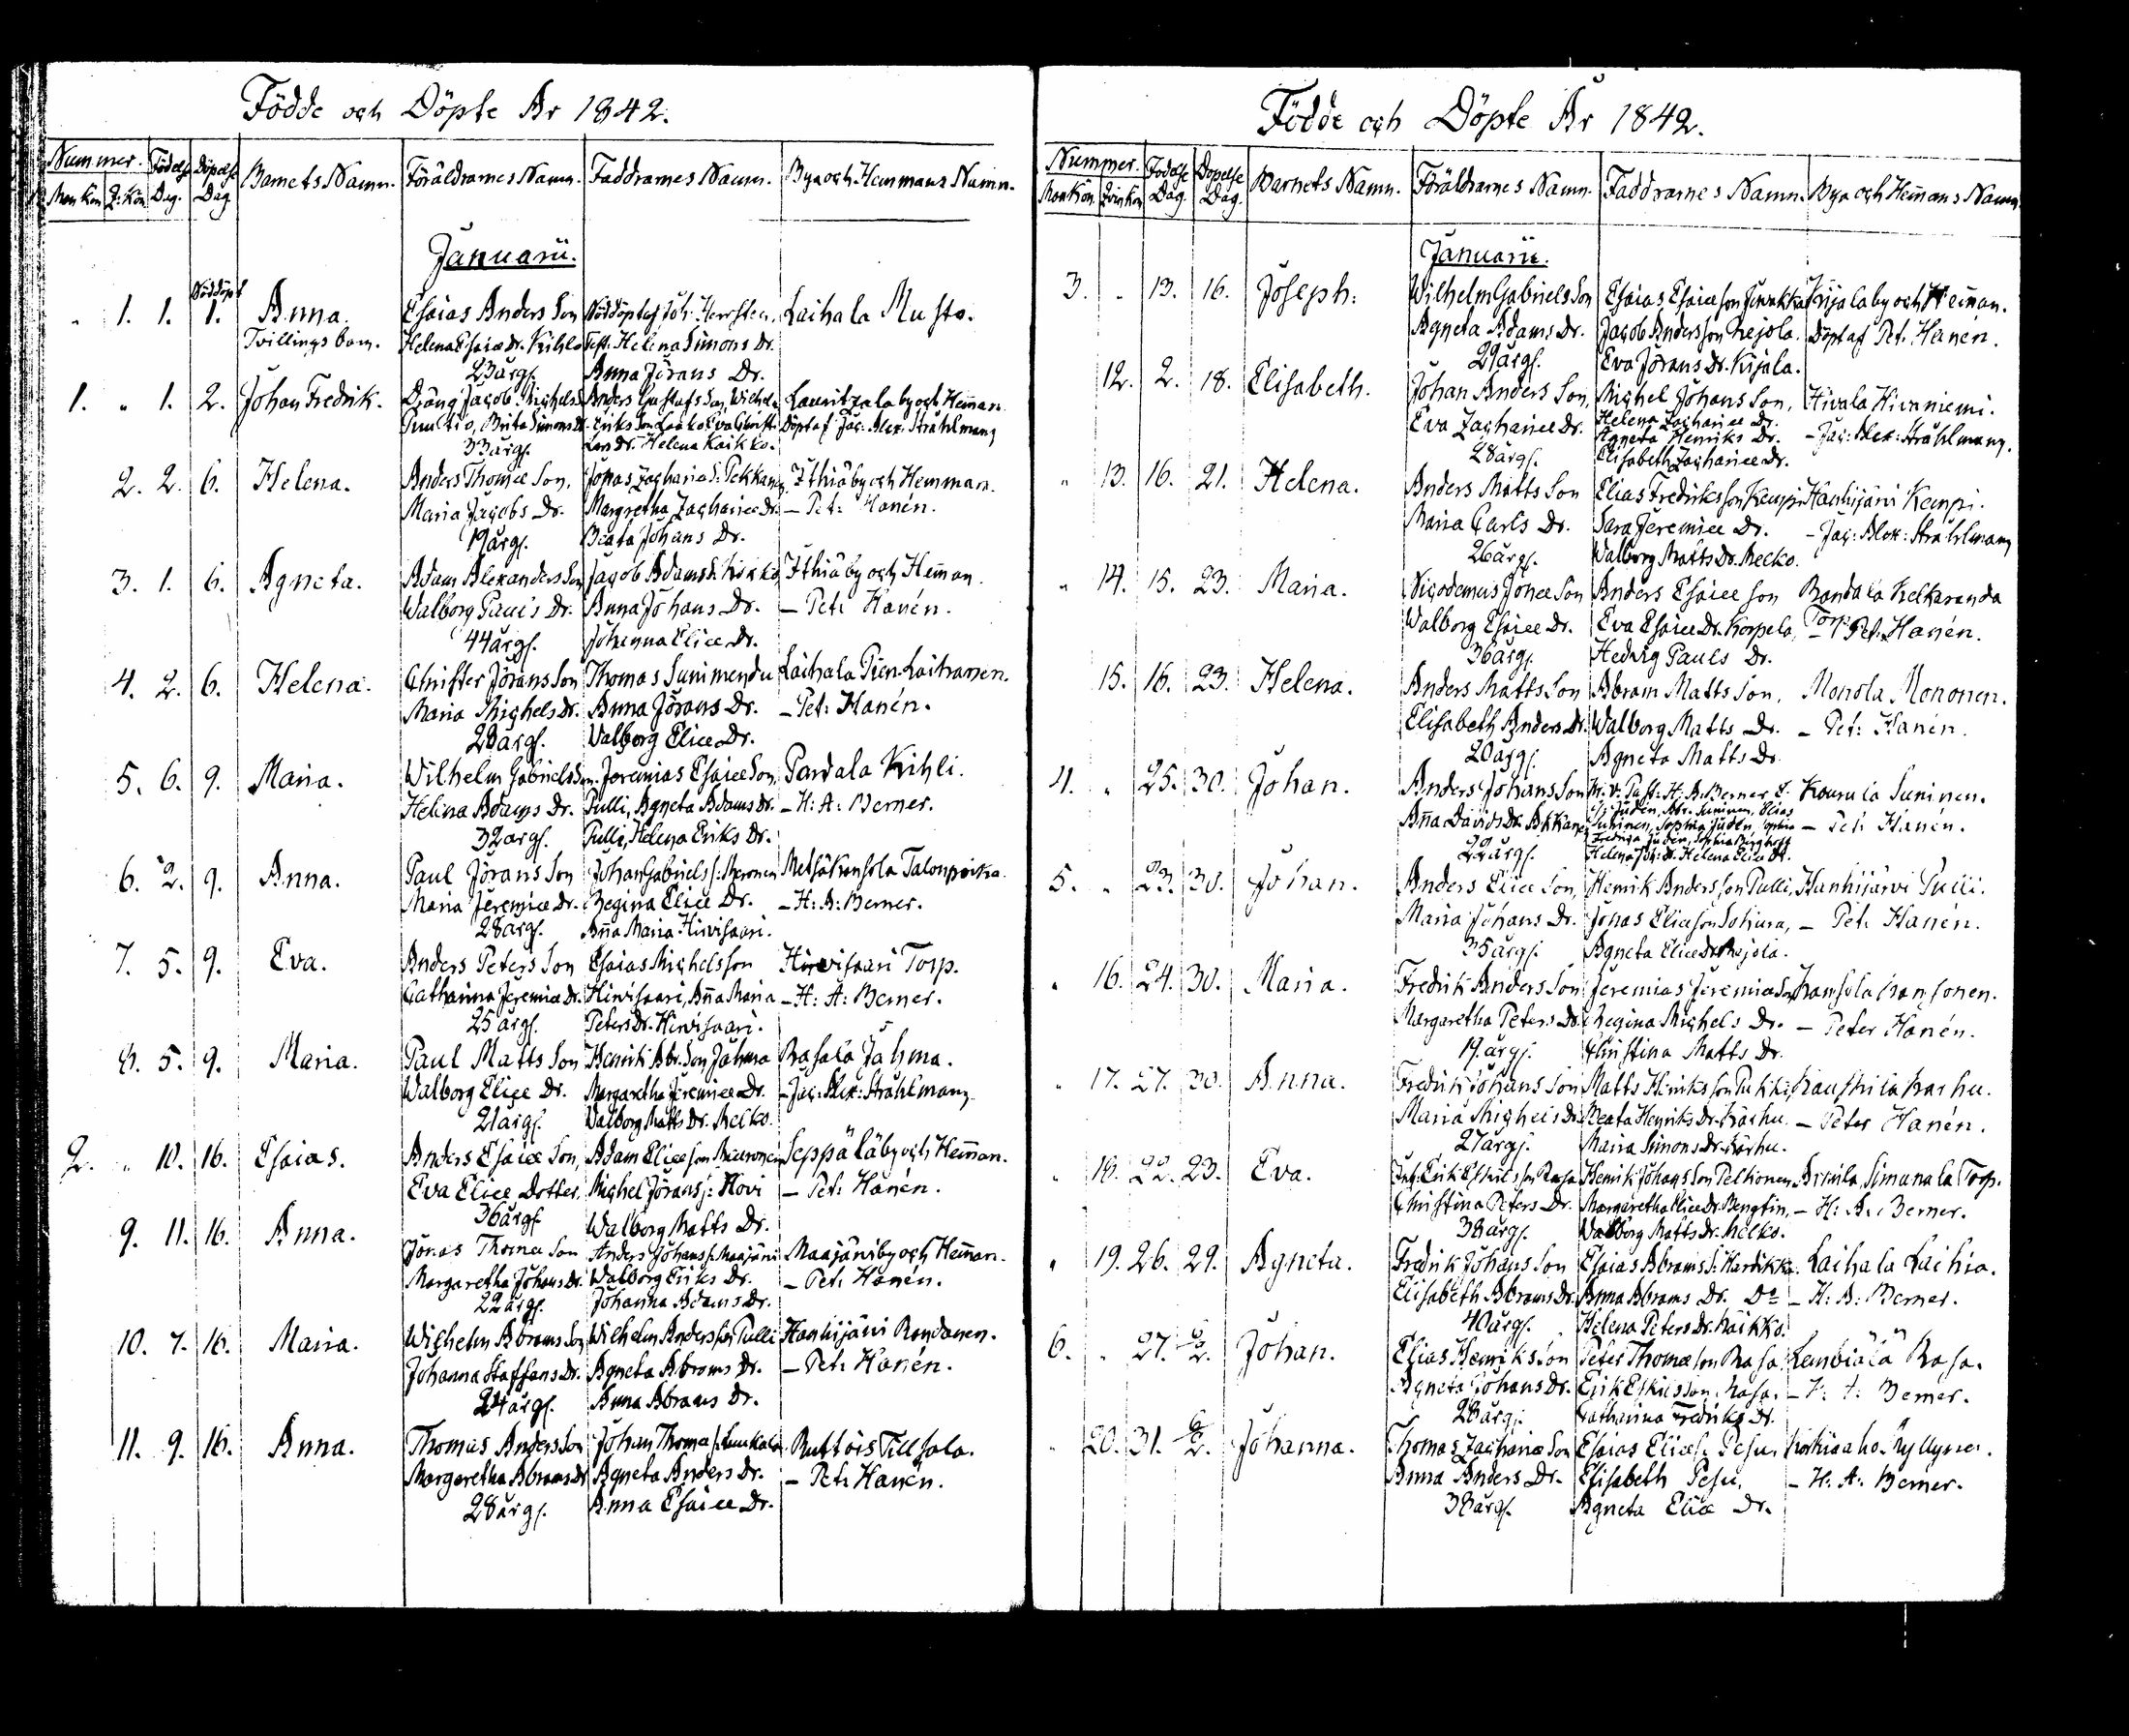 Födde och Döpte År 1842.
Nummer. Födelse Döpelse Barnets Namn. Föräldrarnes Namn. Faddrarnes Namn. Bya och Hemmans Namn.
Man Kön Q: Kön Dag. Dag
Januarii.
Nöddöpt
" 1. 1. 1. Anna. Esaias Anders Son Nöddöpt af Joh: Laihala Musto.
Tvillings barn. Helena Esaiæ Dr. Helena Simons Dr.
23 årg. Anna Jörans Dr.
1. " 1. 2. Johan Fredrik. Dräng Jacob Michels Anders Gustafs Son Lauritzala by och Heman
Brita Simons Dr. Eriks Son Döpt af Jac: Alex: Stråhlmann
33 årg. Dr. Helena Kaikko.
2. 2. 6. Helena. Anders Thomæ Son, Jonas Zachariæ S: Pekkanen, Ithiä by och Hemman.
Maria Jacobs Dr. Margretha Zachariæ Dr. – Pet: Hanén.
19 årg. Beata Johans Dr.
3. 1. 6. Agneta. Adam Alexanders Son Jacob Adams S. Ithiä by och Heman.
Walborg Pauls Dr. Anna Johans Dr. – Pet: Hanén.
44 årg. Johanna Eliæ Dr.
4. 2. 6. Helena. Christer Jörans Son Thomas Laihala Pien-Laihanen.
Maria Michels Dr. Anna Jörans Dr. – Pet: Hanén.
28 årg. Valborg Eliæ Dr.
5. 6. 9. Maria. Wilhelm Gabriels Son. Jeremias Esaiæ Son Pardala Kihli.
Helena Adams Dr. Pulli, Agneta Adams Dr. – H: A: Berner.
32 årg. Pulli, Helena Eriks Dr.
6. 2. 9. Anna. Paul Jörans Son Johan Gabriels S: Talonpoika.
Maria Jeremiæ Dr. Regina Eliæ Dr. – H: A: Berner.
28 årg. Anna Maria Hirvisaari.
7. 5. 9. Eva. Anders Peters Son Esaias Michelsson Hirvisaari Torp.
Catharina Jeremiæ Dr. Hirvisaari, Anna Maria – H: A: Berner.
25 årg. Peters Dr. Hirvisaari.
8. 5. 9. Maria. Paul Matts Son Henrik Abr: Son Jahma Rasala Jahma.
Walborg Eliæ Dr. Margaretha Jeremiæ Dr. – Jac: Alex: Stråhlmann
21 årg. Valborg Matts Dr. Melko.
2. " 10. 16. Esaias. Anders Esaiæ Son, Adam Eliæ son Seppälä by och Heman.
Eva Eliæ Dotter, Michel Jörans S: Hovi – Pet: Hanén.
36 årg. Walborg Matts Dr.
9. 11. 16. Anna. Jonas Thomæ Son Anders Johans S. Maajärvi Maajärvi by och Heman.
Margaretha Johans Dr. Walborg Eriks Dr. – Pet: Hanén.
22 årg. Johanna Adams Dr.
10. 7. 16. Maria. Wilhelm Abrams Son Wilhelm Anders son Pulli Hanhijärvi Rondanen.
Johanna Staffans Dr. Agneta Abrams Dr. – Pet: Hanén.
24 årg. Anna Abrams Dr.
11. 9. 16. Anna. Thomas Anders Son Johan Thomæ S. Ruttois Tillsala.
Margaretha Abrams Dr Agneta Anders Dr. – Pet: Hanén.
28 årg. Anna Esaiæ Dr.
Födde och Döpte År 1842.
Nummer. Födelse Döpelse Barnets Namn. Föräldrarnes Namn. Faddrarnes Namn. Bya och Hemans Namn.
Mankön. Qvinkön Dag. Dag.
Januarii.
3. " 13. 16. Joseph: Wilhelm Gabriels Son Esaias Esaiæ son Kirjala by och Heman.
Agneta Adams Dr. Jacob Andersson Döpt af Pet: Hanén.
29 årg. Eva Jörans Dr. Kirjala.
12. 2. 18. Elisabeth. Johan Anders Son, Michel Johans Son, Hivala Hivaniemi.
Eva Zachariæ Dr. Helena Zachariæ Dr. – Jac: Alex: Stråhlmann.
Agneta Henriks Dr.
28 årg. Elisabeth Zachariæ Dr.
" 13. 16. 21. Helena. Anders Matts Son Elias Fredriksson Kemppi Hanhijärvi Kemppi.
Maria Carls Dr. Sara Jeremiæ Dr. – Jac: Alex: Stråhlmann
26 årg. Walborg Matts Dr. Melko.
" 14. 15. 23. Maria. Nicodemus Jonæ Son Anders Esaiæ Son Randala Kelkaranda
Walborg Esaiæ Dr. Eva Esaiæ Dr. Korpela, Torp. Pet: Hanén.
36 årg. Hedvig Pauls Dr.
15. 16. 23. Helena. Anders Matts Son Abram Matts Son, Monola Mononen.
Elisabeth Anders Dr. Walborg Matts Dr. – Pet: Hanén.
20 årg. Agneta Matts Dr.
4. " 25. 30. Johan. Anders Johans Son H. A. Berner Suninen.
Anna Davids Dr. Akkanen – Pet: Hanén.
22 årg. Helena Joh: Dr. Helena Eliæ Dr.
5. " 23. 30. Johan. Anders Eliæ Son, Henrik Anders son Pulli, Hanhijärvi Pulli.
Maria Johans Dr. Jonas Eliæ son – Pet: Hanén.
35 årg. Agneta Eliæ Dr.
" 16. 24. 30. Maria. Fredrik Anders Son Jeremias Jeremiæ Son Kansola Kansonen.
Margaretha Peters Dr. Regina Michels Dr. – Peter Hanén.
19. årg. Christina Matts Dr.
" 17. 27. 30. Anna. Fredrik Johans Son Matts Henriks son Karhu.
Maria Michels Dr. Beata Henriks Dr. Karhu. – Peter Hanén.
27 årg. Maria Simons Dr. Karhu.
" 18. 22. 23. Eva. Erik Henrik Johans Son Peltonen Simanala Torp.
Christina Peters Dr. Margaretha Eliæ Dr. – H: A: Berner.
38 årg. Walborg Matts Dr. Melko.
" 19. 26. 29. Agneta. Fredrik Johans Son Esaias Abrams S: Laihala Laihia.
Elisabeth Abrams Dr. Anna Abrams Dr. Do – H: A: Berner.
40 årg. Helena Peters Dr. Kaikko.
6. " 27. 6/2. Johan. Elias Henriks Son Peter Thomæ son Rasa Rasa.
Agneta Johans Dr. Erik Eskilsson Rasa. – H: A: Berner.
28 årg. Catharina Fredriks Dr.
" 20. 31. 6/2. Johanna. Thomas Zachariæ Son Esaias Eliæ S. Pesu,
Anna Anders Dr. Elisabeth Pesu, – H. A. Berner.
38 årg. Agneta Eliæ Dr.